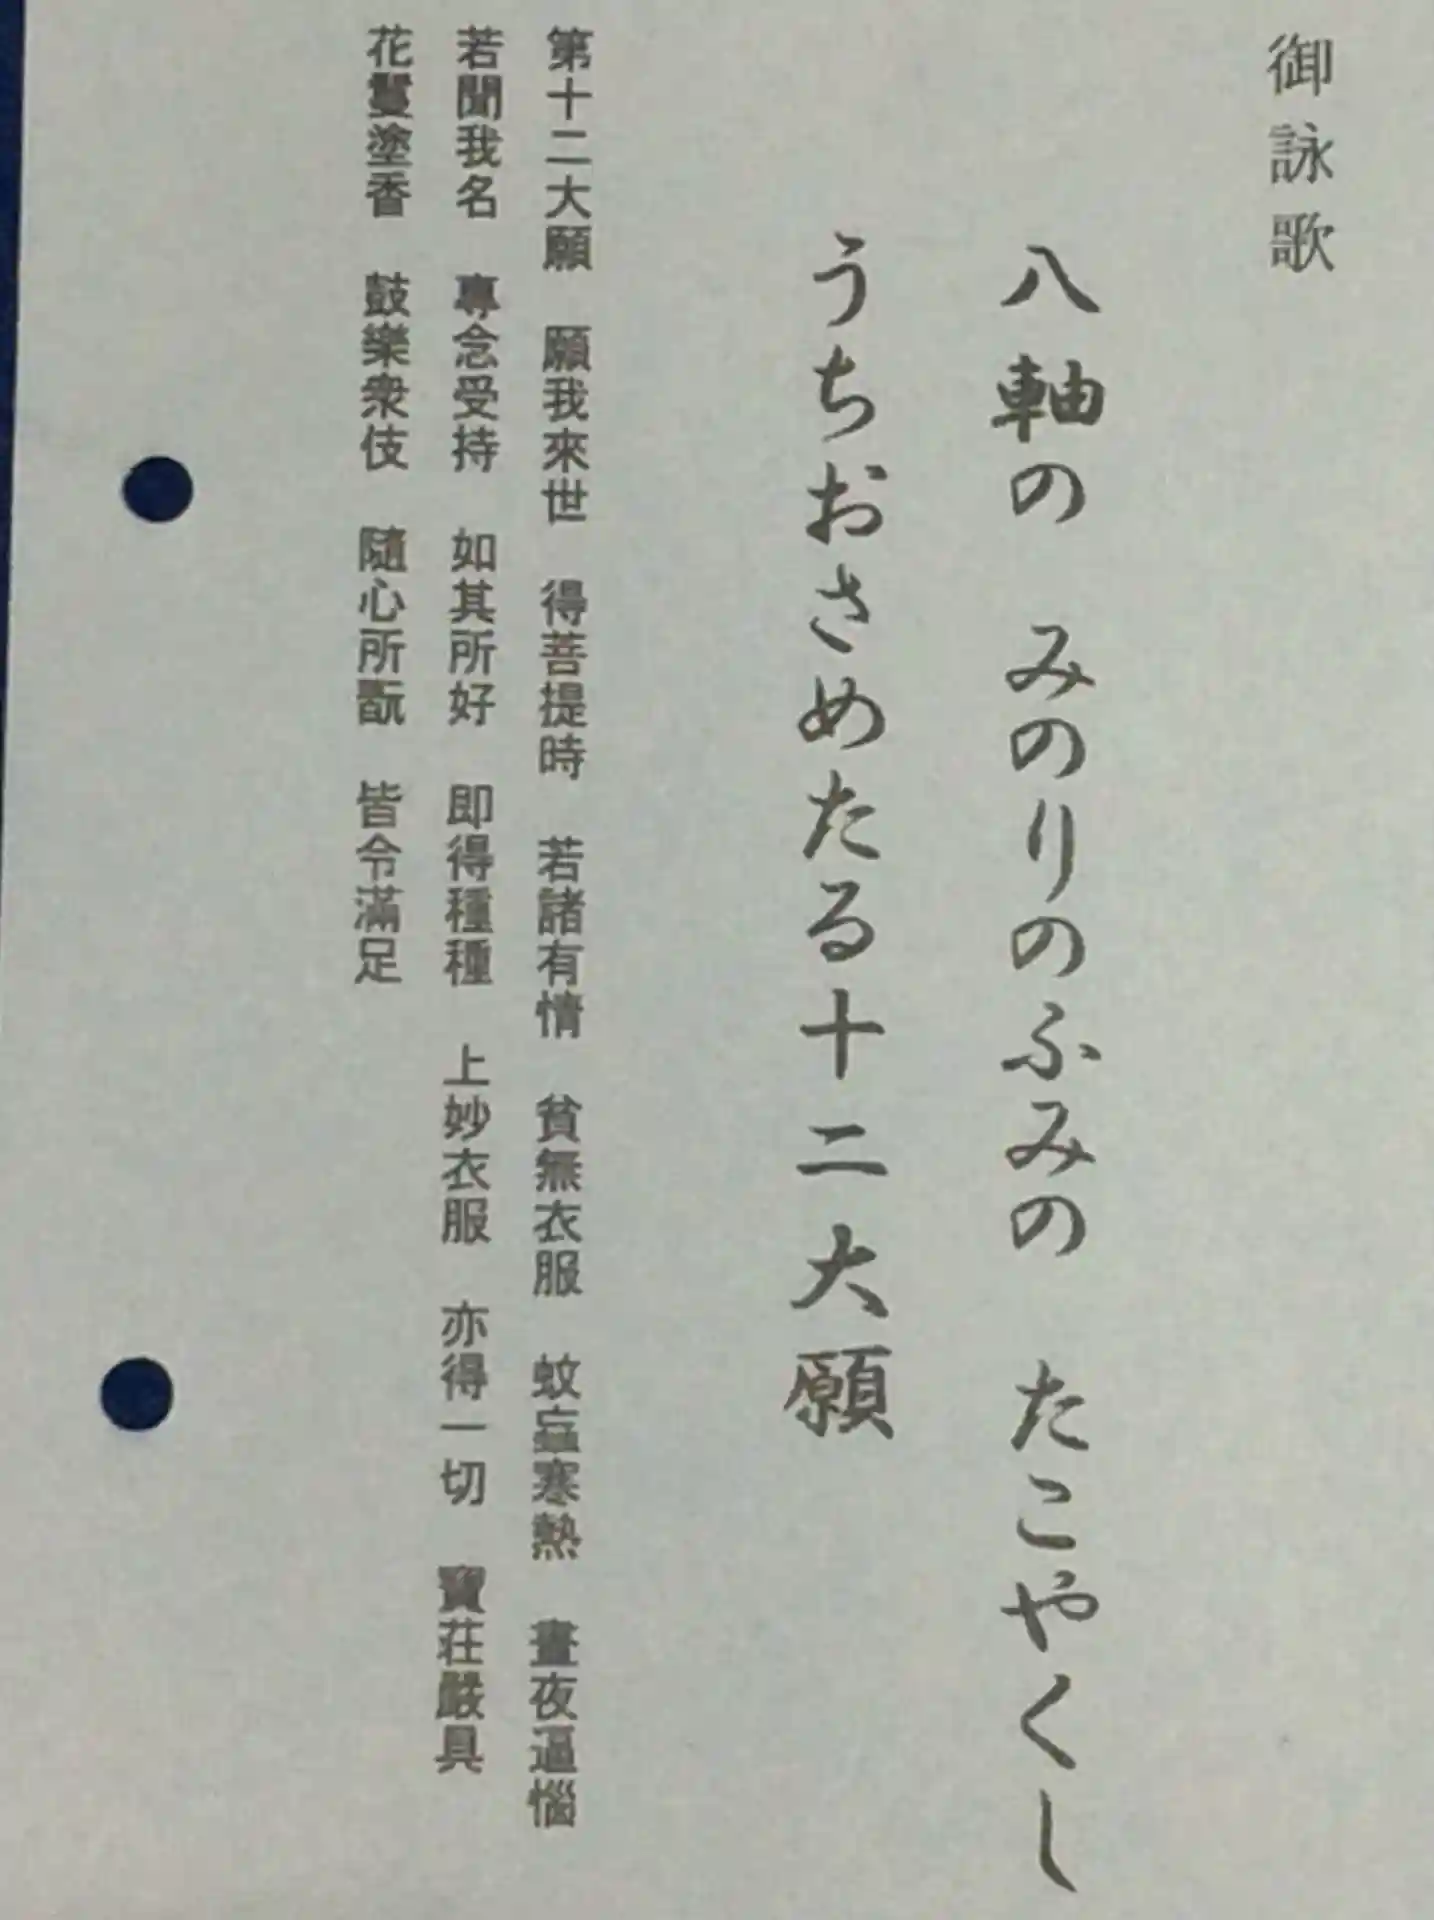 御詠歌
八軸の　みのりのふみの　たこやくし
うちおさめたる十二大願
第十二大願　願我來世　得菩提時　若諸有情　貧無衣服　蚊蝱寒熱　晝夜逼惱
若聞我名　專念受持　如其所好　即得種種　上妙衣服　亦得一切　寶荘嚴具
花鬘塗香　鼓樂衆伎　隨心所翫　皆令滿足